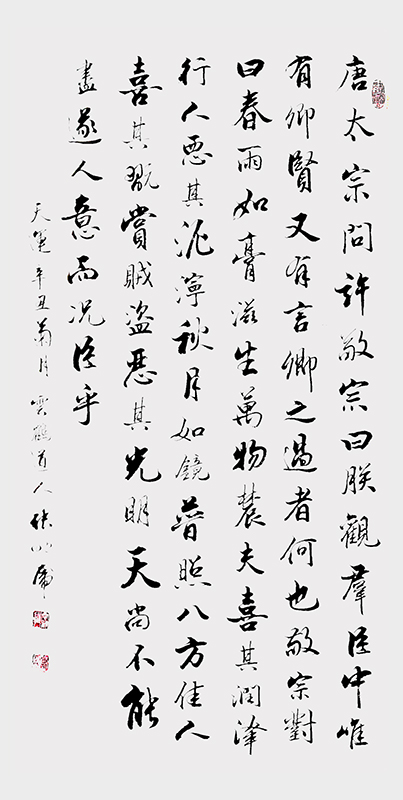 唐太宗問許敬宗曰朕觀羣臣中唯
有卿賢又有言卿之過者何也敬宗對
曰春雨如膏滋生萬物農夫喜其潤澤
行人惡其泥濘秋月如鏡普照八方佳人
喜其翫賞賊盜惡其光明天尚不能
盡遂人意而況臣乎
天運辛丑菊月雲道人張